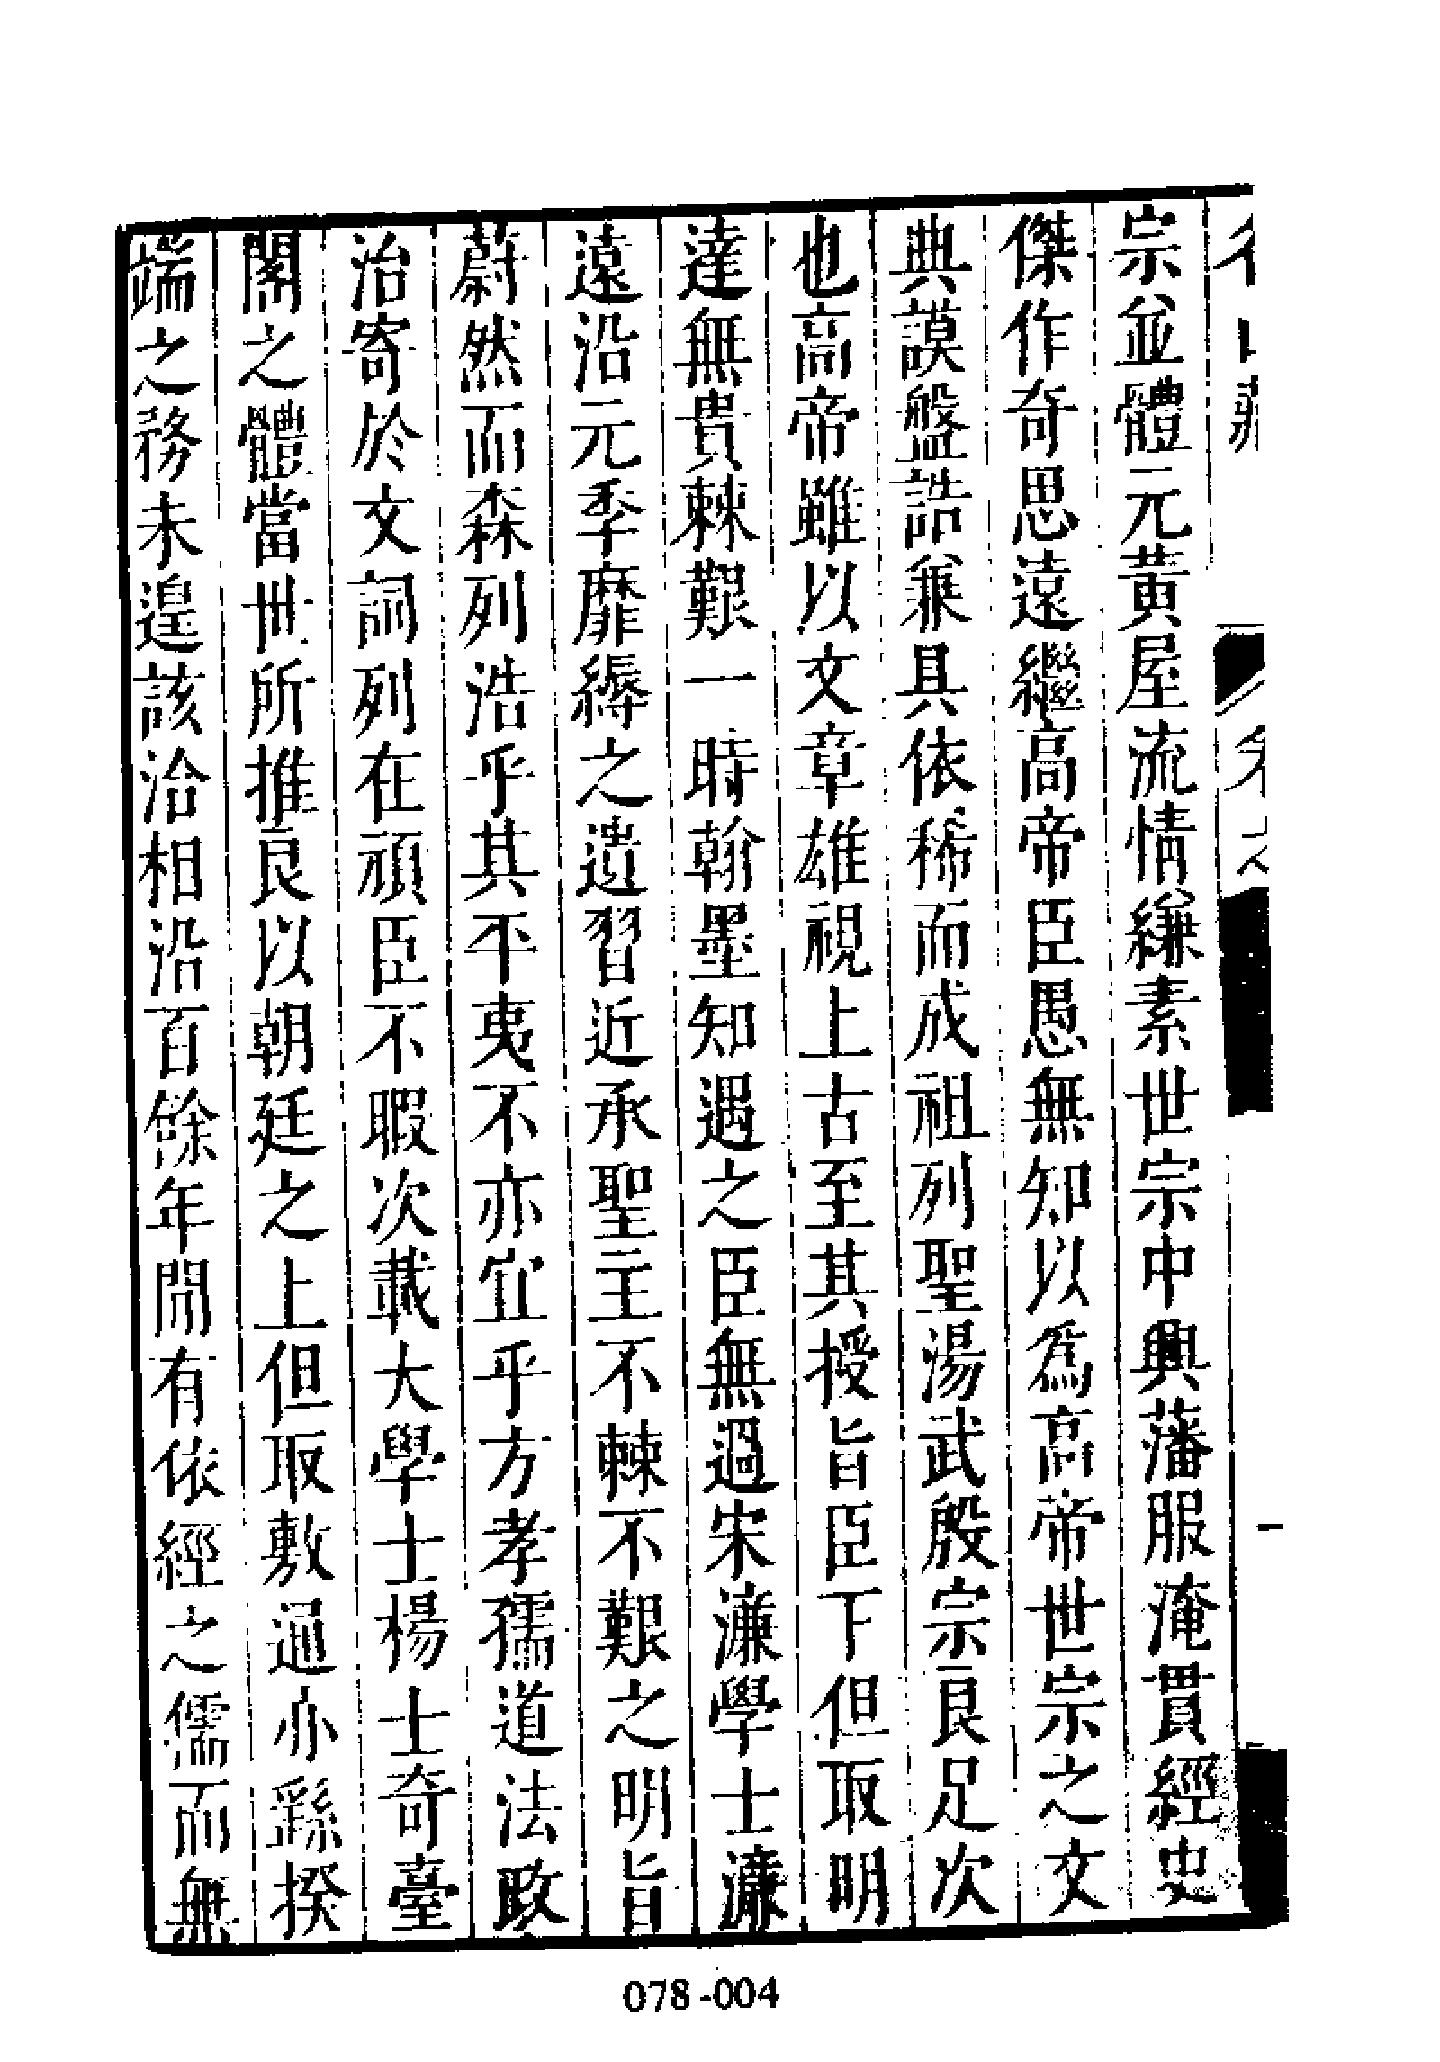 宗並體元黃屋流情縑素世宗中興藩服淹貫經史
傑作奇思遠繼高帝臣愚無知以爲高帝世宗之文
典謨盤誥兼具依稀而成祖列聖湯武殷宗良足次
也高帝雖以文章雄視上古至其授旨臣下但取明
達無貴棘艱一時翰墨知遇之臣無過宋濂學士濂
遠沿元季靡縟之遺習近承聖主不棘不艱之明旨
蔚然而森列浩乎其平夷不亦宜乎方孝孺道法政
治寄於文詞列在頑臣不暇次載大學士楊士奇臺
閣之體當世所推良以朝廷之上但取敷通亦繇揆
端之務未遑該洽相沿百餘年間有依經之儒而無
078-004